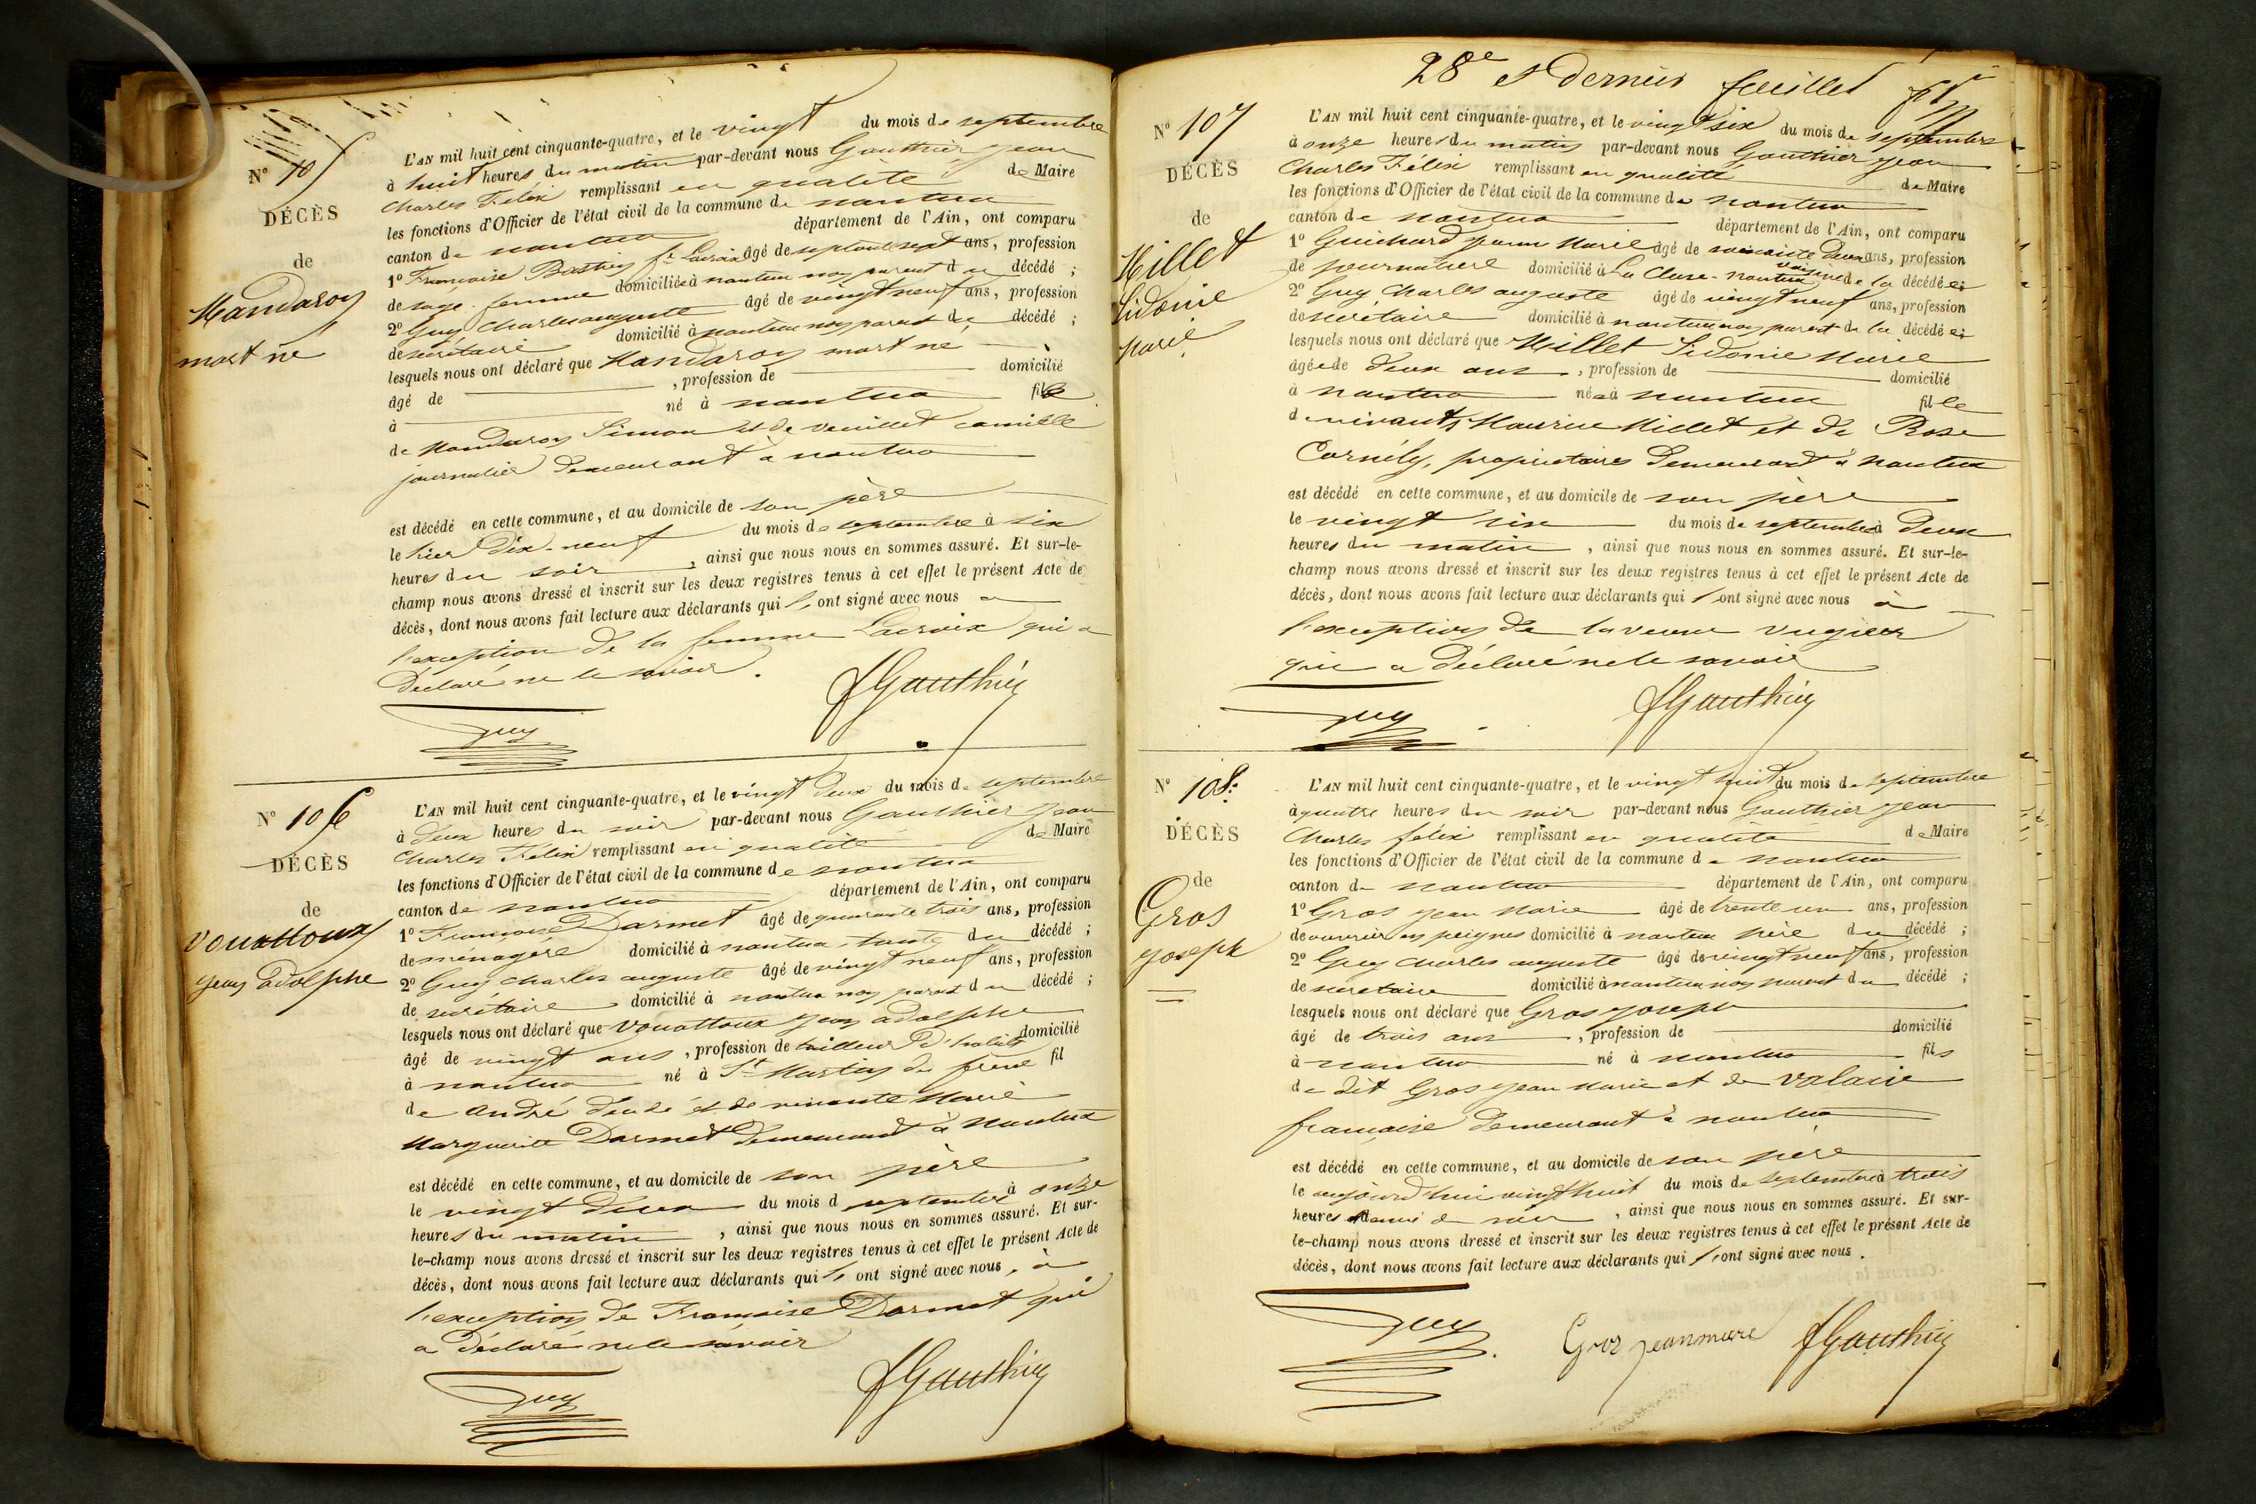 Nº 105
DÉCÈS
de
Mandaron
mort né
L'AN mil huit cent cinquante-quatre, et le vingt du mois de septembre
à huit heures du matin par-devant nous Gauthier Jean
Charles Félix remplissant en qualité de Maire
les fonctions d'Officier de l'état civil de la commune de nantua
canton de nantua département de l'Ain, ont comparu
1º Françoise Bastin fe Lacroix âgé de septante sept ans, profession
de sage femme domiciliée à nantua non parent du décédé ;
2º Guy Charles auguste âgé de vingt neuf ans, profession
de secrétaire domicilié à nantua non parent du décédé ;
lesquels nous ont déclaré que Mandaron mort né
âgé de , profession de domicilié
à né à nantua fils
de Mandaron Simon et de vuillet camille
journalier demeurant à nantua
est décédé en cette commune, et au domicile de son père
le hier dix-neuf du mois de septembre à six
heures du soir , ainsi que nous nous en sommes assuré. Et sur-le-
champ nous avons dressé et inscrit sur les deux registres tenus à cet effet le présent Acte de
décès, dont nous avons fait lecture aux déclarants qui l'ont signé avec nous à
l'exception de la femme Lacroix qui a
déclaré ne le savoir.
Guy
fGauthier
Nº 106
DÉCÈS
de
Vouattoux
Jean adolphe
L'AN mil huit cent cinquante-quatre, et le vingt deux du mois de septembre
à deux heures du soir par-devant nous Gauthier Jean
Charles Félix remplissant en qualité de Maire
les fonctions d'Officier de l'état civil de la commune de nantua
canton de nantua département de l'Ain, ont comparu
1º Françoise Darmet âgé de quarante trois ans, profession
de ménagère domicilié à nantua tante du décédé ;
2º Guy Charles auguste âgé de vingt neuf ans, profession
de secrétaire domicilié à nantua non parent du décédé ;
lesquels nous ont déclaré que Vouattoux Jean adolphe
âgé de vingt ans , profession de tailleur d'habits domicilié
à nantua né à St Martin du frêne fil
de André décédé et de vivante Marie
Marguerite Darmet demeurant à Nantua
est décédé en cette commune, et au domicile de son père
le vingt deux du mois d septembre à onze
heures du matin , ainsi que nous nous en sommes assuré. Et sur-
le-champ nous avons dressé et inscrit sur les deux registres tenus à cet effet le présent Acte de
décès, dont nous avons fait lecture aux déclarants qui l'ont signé avec nous, à
l'exception de Françoise Darmet qui
a déclaré ne le savoir
Guy
fGauthier
28e et dernier feuillet
Nº 107
DÉCÈS
de
Millet
Sidonie
Marie
L'AN mil huit cent cinquante-quatre, et le vingt six du mois de septembre
à onze heures du matin par-devant nous Gauthier Jean
Charles Félix remplissant en qualité de Maire
les fonctions d'Officier de l'état civil de la commune de nantua
canton de nantua département de l'Ain, ont comparu
1º Guichard Jeanne Marie âgé de soixante deux ans, profession
de journalière domicilié à La Cluse-nantua voisine de la décédée ;
2º Guy Charles auguste âgé de vingt neuf ans, profession
de secrétaire domicilié à nantua non parent de la décédée ;
lesquels nous ont déclaré que Millet Sidonie Marie
âgée de deux ans , profession de domicilié
à nantua née à nantua fille
de vivants Maurice Millet et de Rose
Cornély, propriétaires demeurant à nantua
est décédé en cette commune, et au domicile de son père
le vingt six du mois de septembre à deux
heures du matin , ainsi que nous nous en sommes assuré. Et sur-le-
champ nous avons dressé et inscrit sur les deux registres tenus à cet effet le présent Acte de
décès, dont nous avons fait lecture aux déclarants qui l'ont signé avec nous à
l'exception de la veuve
qui a déclaré ne le savoir
Guy
fGauthier
Nº 108.
DÉCÈS
de
Gros
Joseph
L'AN mil huit cent cinquante-quatre, et le vingt huit du mois de septembre
à quatre heures du soir par-devant nous Gauthier Jean
Charles félix remplissant en qualité de Maire
les fonctions d'Officier de l'état civil de la commune de nantua
canton de nantua département de l'Ain, ont comparu
1º Gros Jean Marie âgé de trente un ans, profession
de ouvrier en peignes domicilié à nantua père du décédé ;
2º Guy Charles auguste âgé de vingt neuf ans, profession
de secrétaire domicilié à nantua non parent du décédé ;
lesquels nous ont déclaré que Gros Joseph
âgé de trois ans , profession de domicilié
à nantua né à nantua fils
de dit Gros Jean Marie et de Valaise
françoise demeurant à nantua
est décédé en cette commune, et au domicile de son père
le aujourd'hui vingt huit du mois de septembre à trois
heures demie du soir , ainsi que nous nous en sommes assuré. Et sur-
le-champ nous avons dressé et inscrit sur les deux registres tenus à cet effet le présent Acte de
décès, dont nous avons fait lecture aux déclarants qui l'ont signé avec nous.
Guy
Gros jeanmarie
fGauthier